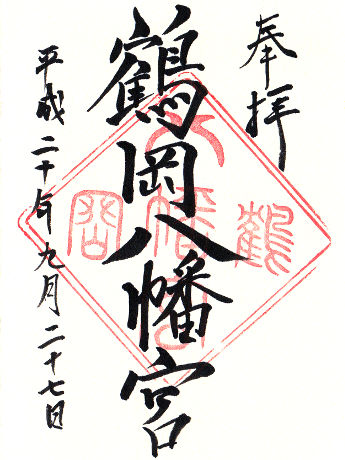 奉拝
鶴岡八幡宮
平成二十年九月二十七日
鶴
八幡宮
岡